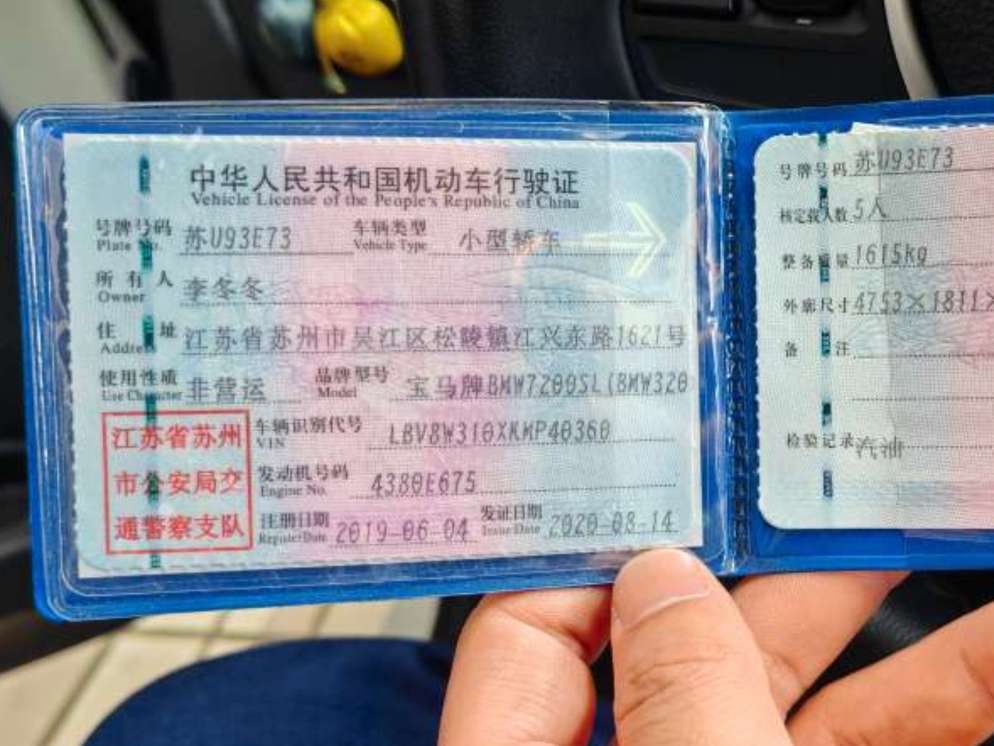 中华人民共和国机动车行驶证
Vehicle License of the People's Republic of China
号牌号码 苏U93E73 车辆类型 小型轿车
Plate No. Vehicle Type
所有人 李冬冬
Owner
住址 江苏省苏州市吴江区松陵镇江兴东路1621号
Address
使用性质 非营运 品牌型号 宝马牌BMW7200SL(BMW320
Use Character Model
江苏省苏州
市公安局交
通警察支队
车辆识别代号 LBV8W310XKMP40360
VIN
发动机号码 4380E675
Engine No.
注册日期 2019-06-04 发证日期 2020-08-14
Register Date Issue Date
号牌号码 苏U93E73
核定载人数 5人
整备质量 1615kg
外廓尺寸 4753×1811×
备注
检验记录 汽油